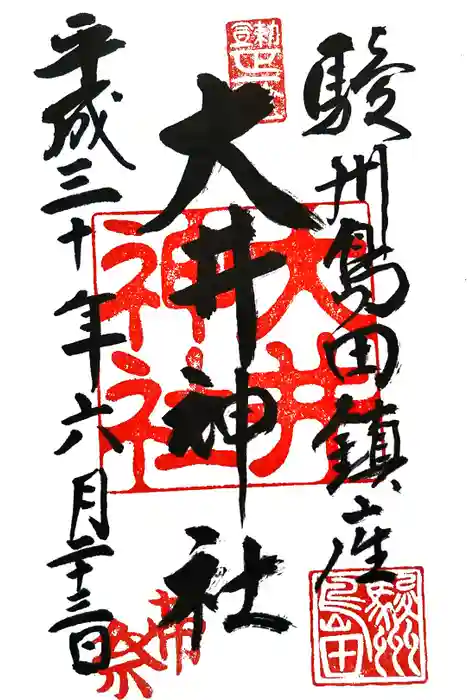 駿州島田鎮座
大井神社
平成三十年六月二十三日
大井神社
駿州島田
帯祭